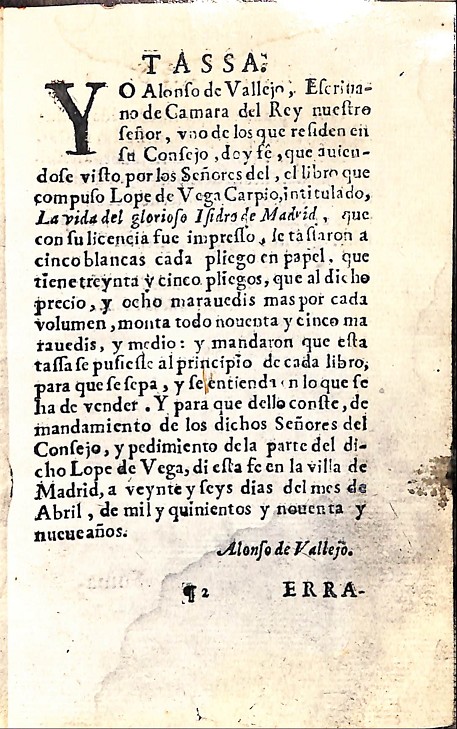 TASSA.
YO Alonso de Vallejo, Escriua-
no de Camara del Rey nuestro
señor, vno de los que residen en
su Consejo, doy fê, que auien-
dose visto por los Señores del, el libro que
compuso Lope de Vega Carpio, intitulado,
La vida del glorioso Isidro de Madrid, que
con su licencia fue impresso, le tassaron a
cinco blancas cada pliego en papel, que
tiene treynta y cinco pliegos, que al dicho
precio, y ocho marauedis mas por cada
volumen, monta todo nouenta y cinco ma
rauedis, y medio: y mandaron que esta
tassa se pusiesse al principio de cada libro,
para que se sepa, y se entienda en lo que se
ha de vender. Y para que dello conste, de
mandamiento de los dichos Señores del
Consejo, y pedimiento de la parte del di-
cho Lope de Vega, di esta fe en la villa de
Madrid, a veynte y seys dias del mes de
Abril, de mil y quinientos y nouenta y
nueue años.
Alonso de Vallejo.
¶ 2 ERRA-